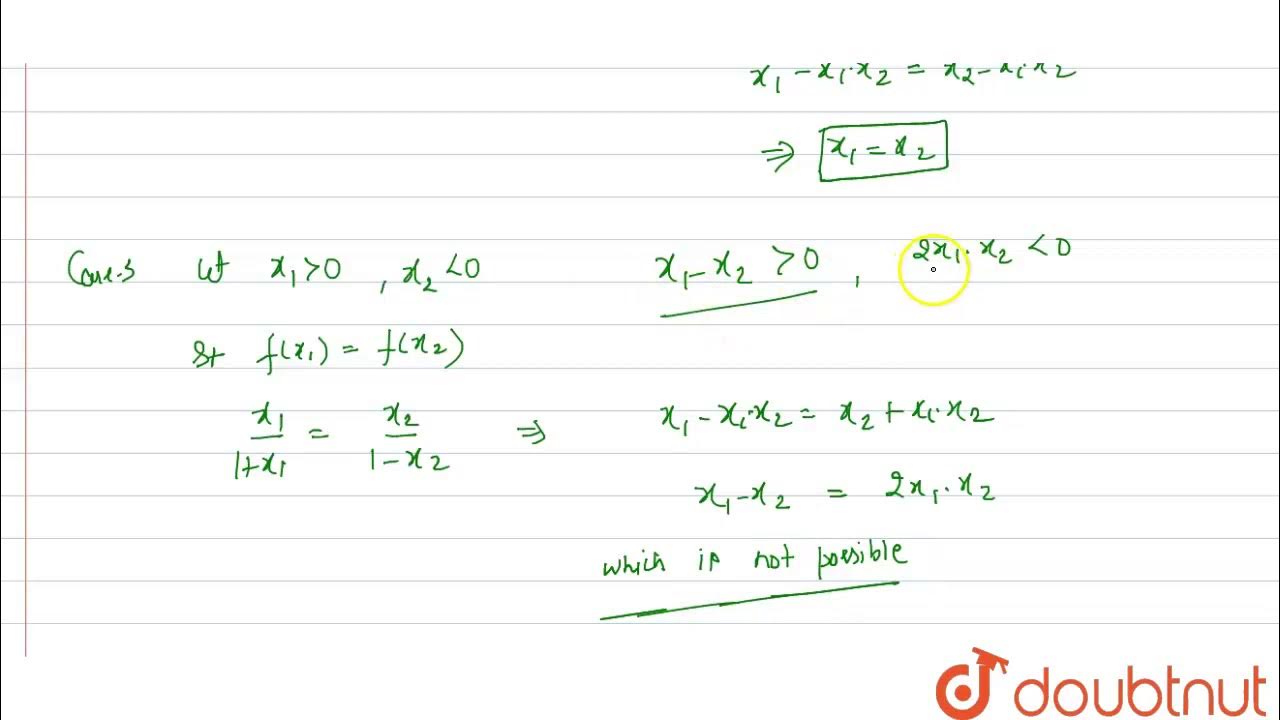 x₁ - x₁·x₂ = x₂ - x₁·x₂
⇒ x₁ = x₂
Case-3 let x₁>0 , x₂<0 x₁ - x₂ > 0 , 2x₁·x₂ < 0
st f(x₁) = f(x₂)
x₁/1+x₁ = x₂/1-x₂ ⇒ x₁ - x₁·x₂ = x₂ + x₁·x₂
x₁ - x₂ = 2x₁·x₂
which is not possible
doubtnut